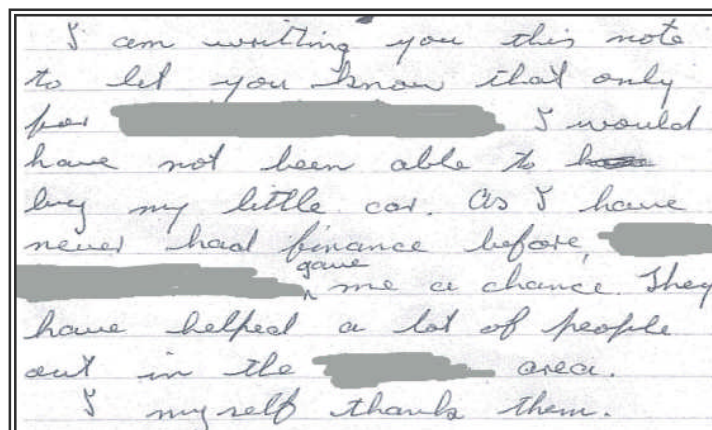 I am writting you this note
to let you know that only
for I would
have not been able to
buy my little car. As I have
never had finance before,
gave me a chance. They
have helped a lot of people
out in the area.
I myself thank them.